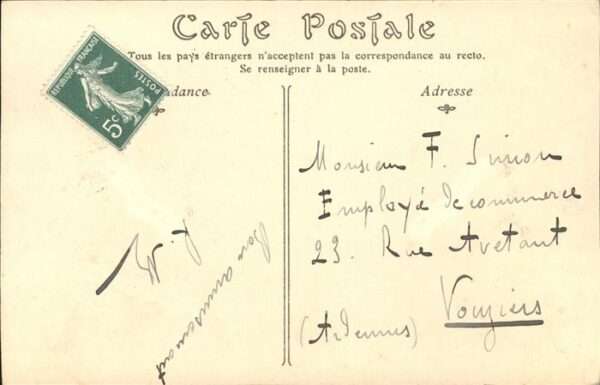 Carte Postale
Tous les pays étrangers n'acceptent pas la correspondance au recto.
Se renseigner à la poste.
REPUBLIQUE FRANÇAISE
POSTES
5c
dance
Bon amusement
Adresse
Monsieur F. Simon
Employé de commerce
23. Rue Avetant
Vouziers
(Ardennes)